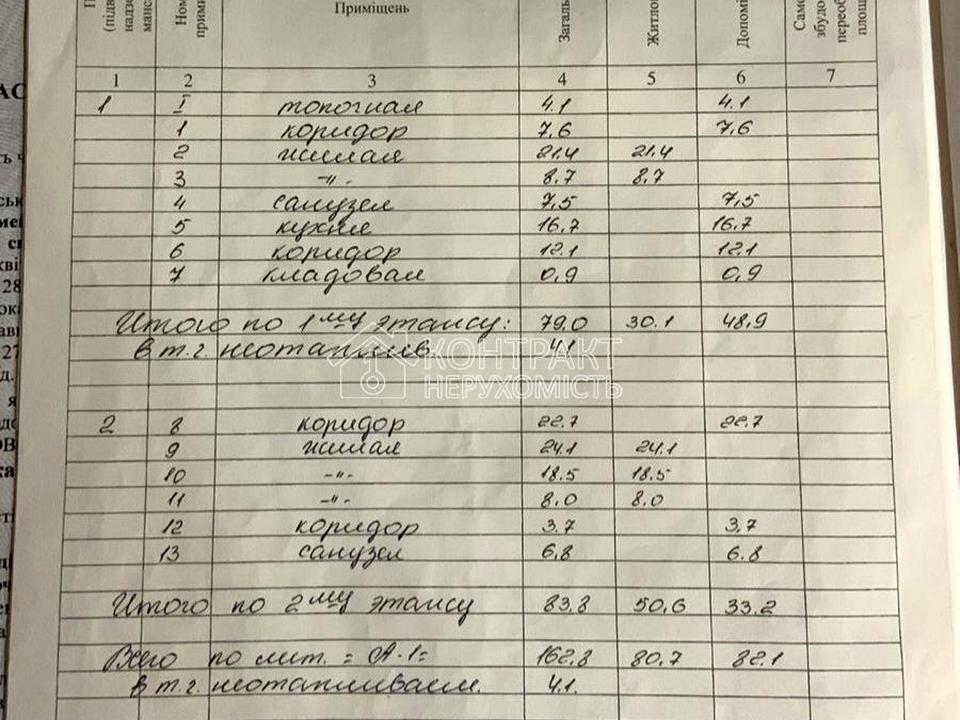 (підв
надзе
манса
Ном
примі
Приміщень
Загаль
Житлов
Допомі
Само
збудо
переоб
площ
1 2 3 4 5 6 7
1 I топочная 4.1 4.1
1 коридор 7,6 7,6
2 жилая 21.4 21.4
3 -"- 8.7 8.7
4 санузел 7,5 7,5
5 кухня 16,7 16,7
6 коридор 12.1 12.1
7 кладовая 0,9 0,9
Итого по 1му этажу: 79.0 30.1 48,9
в т.ч. неотаплив. 4.1
КОНТРАКТ
НЕРУХОМІСТЬ
2 8 коридор 22.7 22.7
9 жилая 24.1 24.1
10 -"- 18.5 18.5
11 -"- 8.0 8.0
12 коридор 3.7 3,7
13 санузел 6,8 6.8
Итого по 2му этажу 83.8 50,6 33.2
Всего по лит. = А-1= 162.8 80.7 82.1
в т.ч. неотапливаем. 4.1.